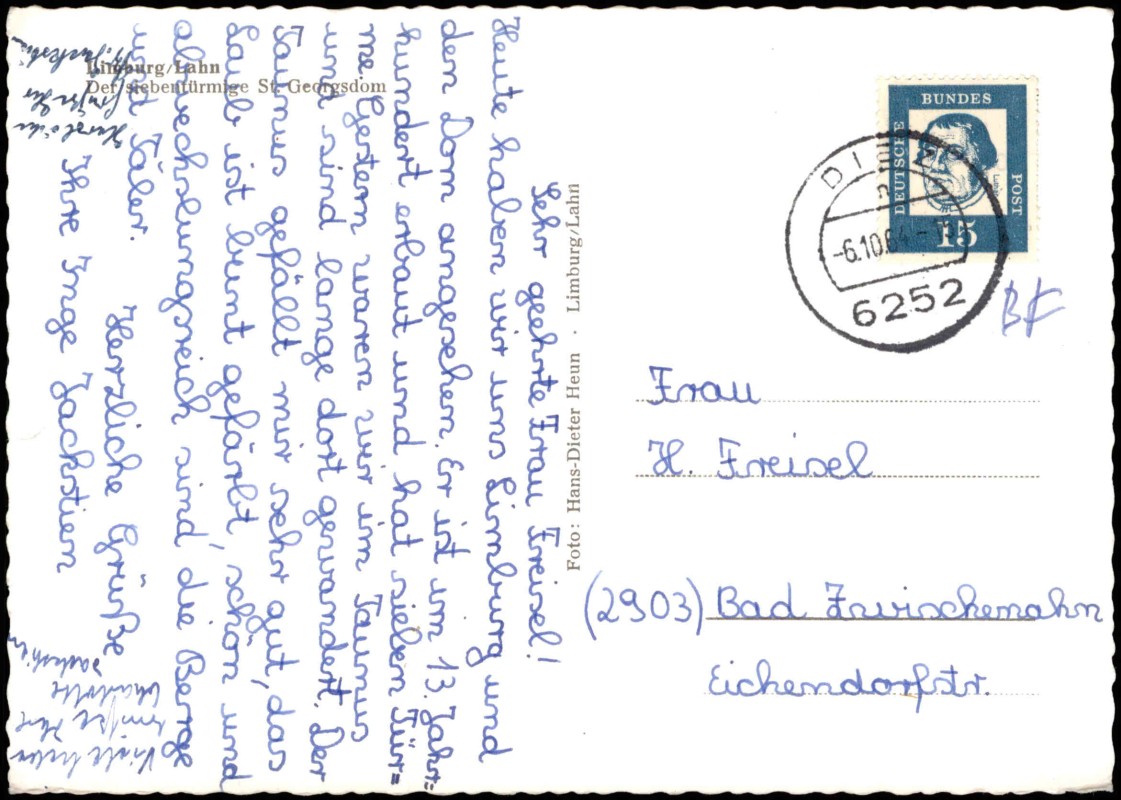 Limburg/Lahn
Der siebentürmige St. Georgsdom
Sehr geehrte Frau Freisel!
Heute haben wir uns Limburg und
den Dom angesehen. Er ist im 13. Jahr=
hundert erbaut und hat sieben Tür=
me. Gestern waren wir im Taunus
und sind lange dort gewandert. Der
Taunus gefällt mir sehr gut, das
Laub ist bunt gefärbt, schön und
abwechslungsreich sind, die Berge
und Täler.
Herzliche Grüße
Ihre Inge Jackstien
Viele liebe
Grüße Ihre
Charlotte
Jackstien
Grüße
Foto: Hans-Dieter Heun · Limburg/Lahn
DEUTSCHE BUNDES POST
15
DIEZ
-6.10.64
6252
BF
Frau
H. Freisel
(2903) Bad Zwischenahn
Eichendorfstr.